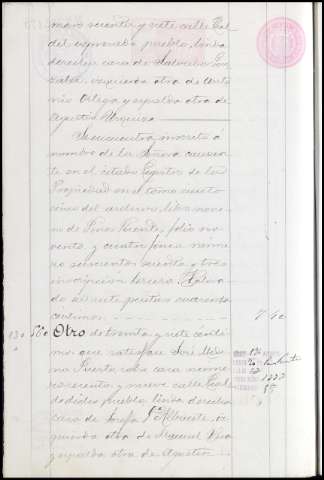 mero sesenta y siete calle Real
del espresado pueblo, linda
derecha casa de Salvador Gon
zalez, izquierda otra de Anto
nio Ortega y espalda otra de
Agustin
Se encuentra inscrito a
nombre de la Señora causan
te en el citado Registro de la
Propiedad en el tomo ciento
cinco del archivo, libro nove
no de Pinos Puente, folio no
venta y cuatro, finca núme
ro seiscientos sesenta y tres
inscripcion tercera. Valora
do siete pesetas cuarenta
centimos 7 40
130 56º Otro de treinta y siete centi
mos que satisface José
Puerto, sobre casa número
sesenta y nueve calle Real
de dicho pueblo, linda derecha
casa de Josefa iz
quierda otra de Miguel
y espalda otra de